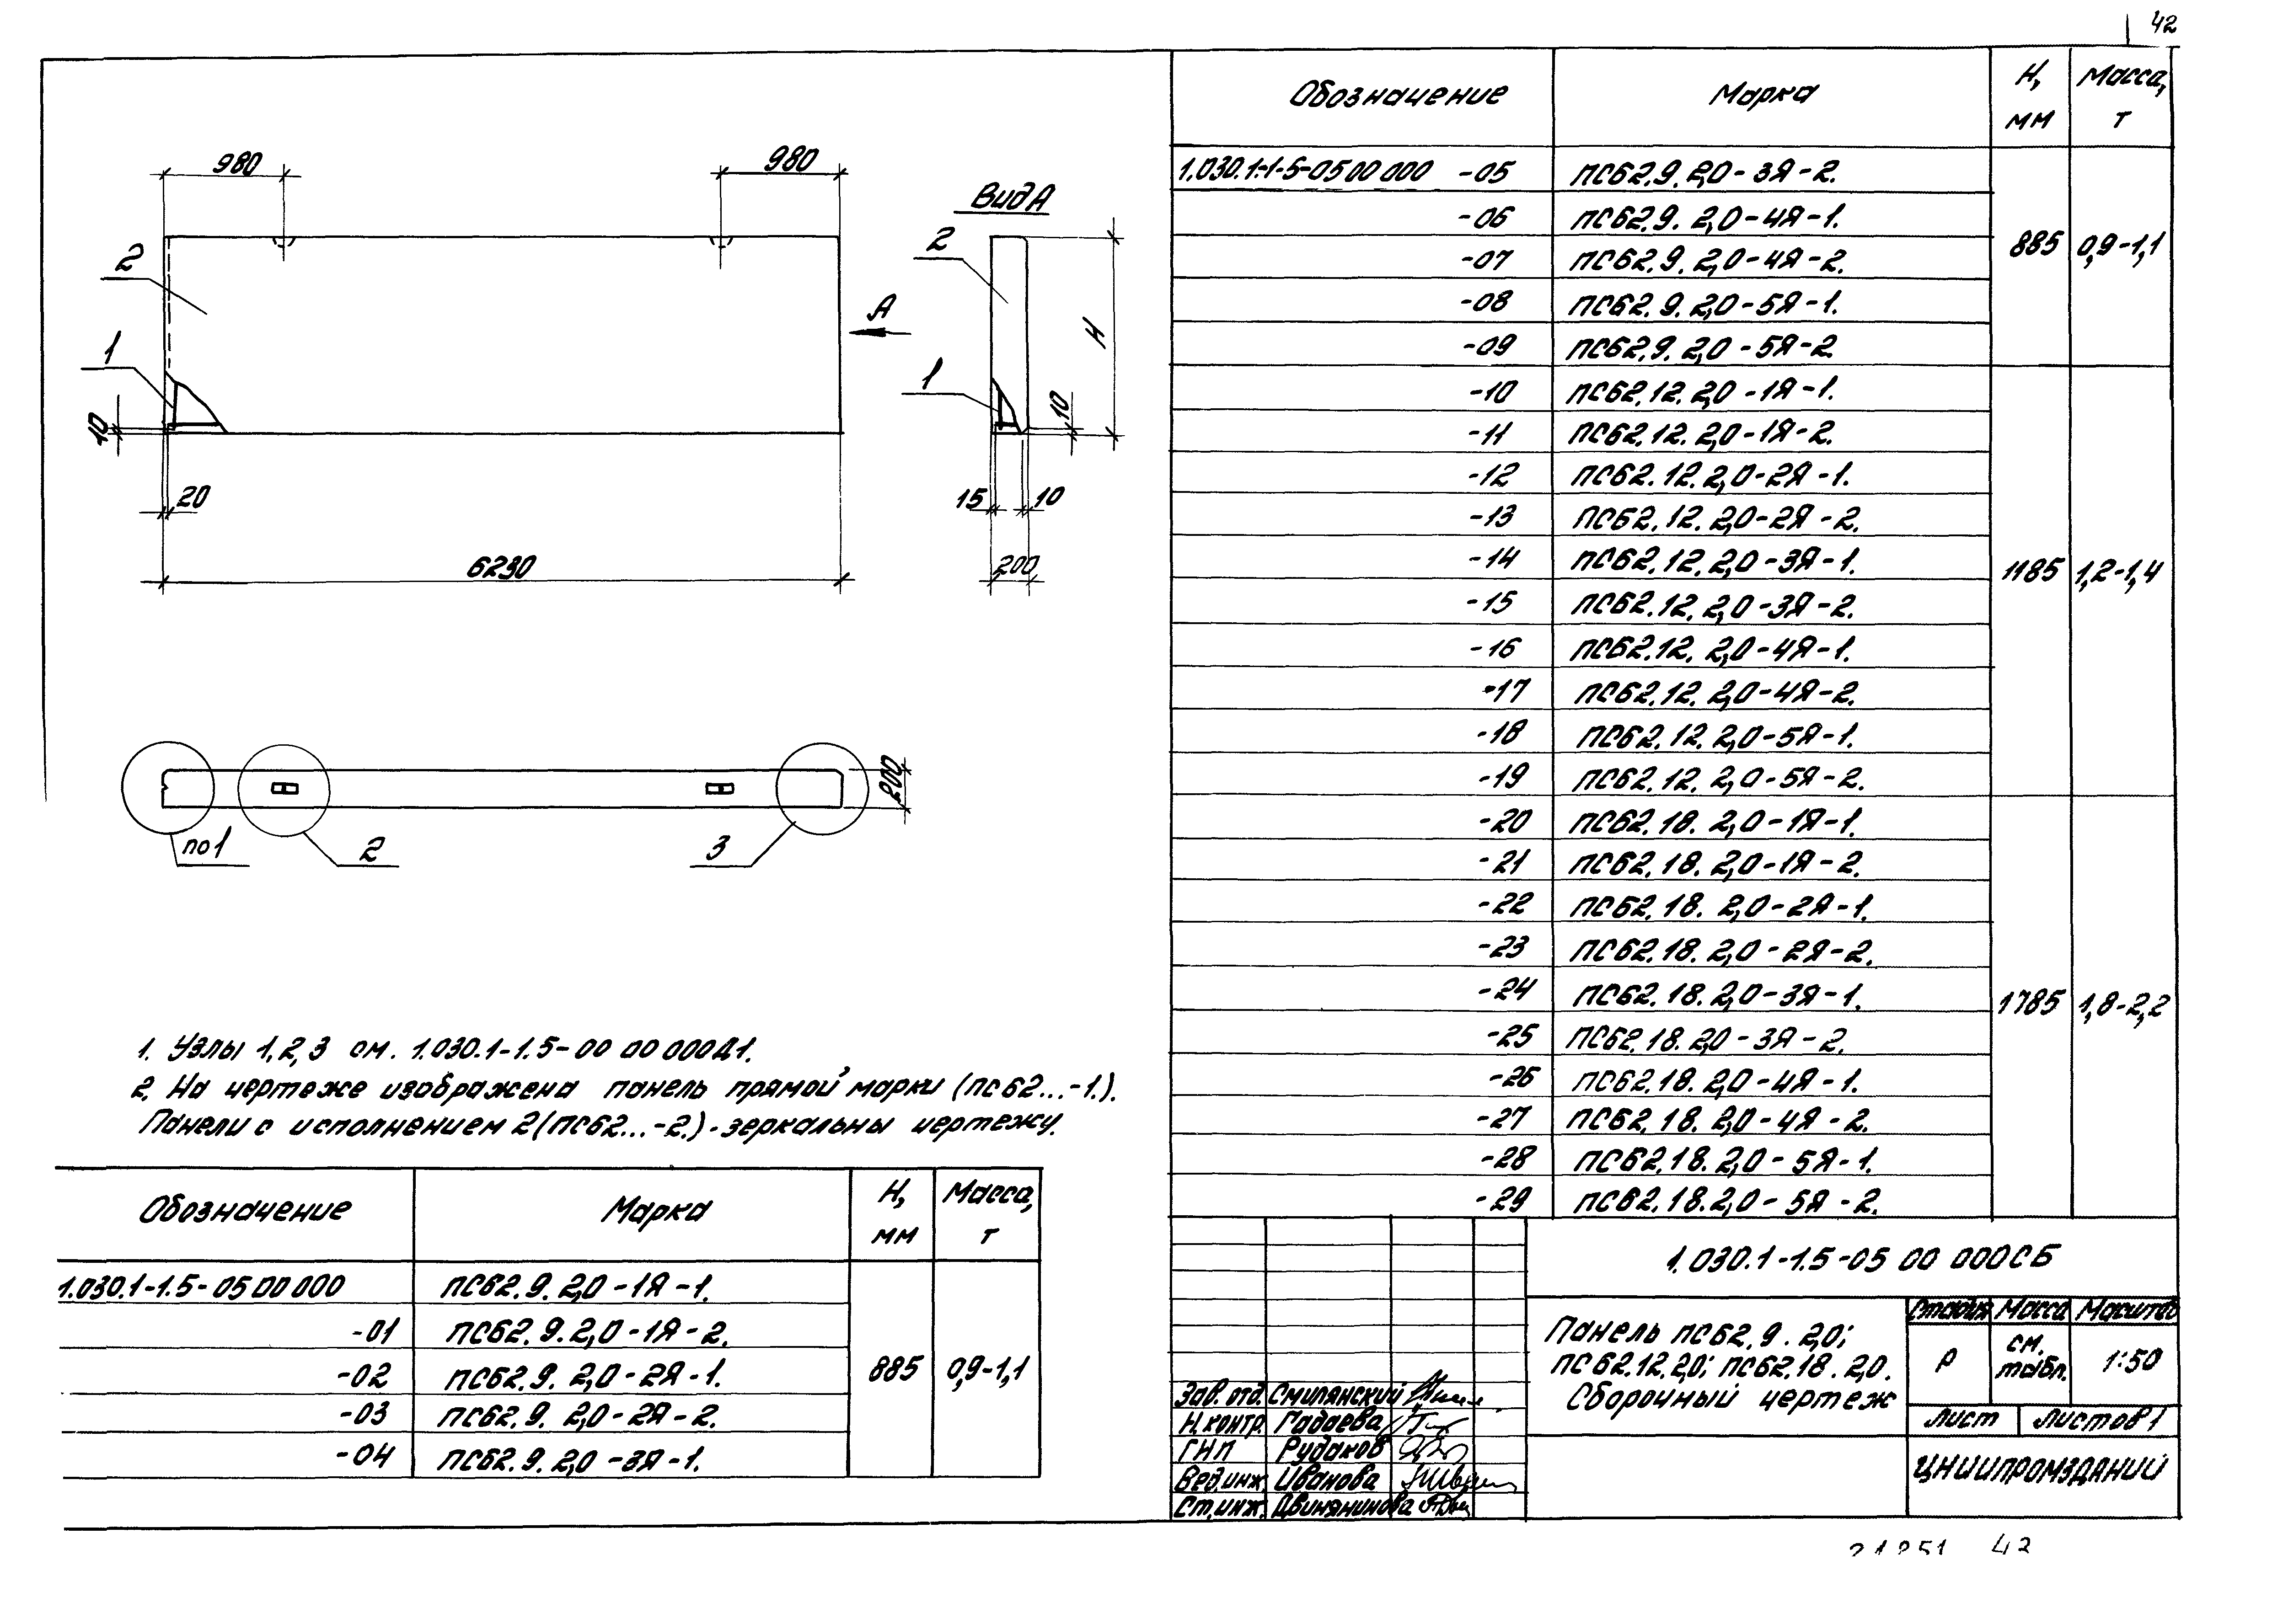 42
980
980
Вид А
2
2
А
1
1
Н
10
10
20
15
10
6230
200
по 1
2
3
200
1. Узлы 1,2,3 см. 1.030.1-1.5-00 00 000Д1.
2. На чертеже изображена панель прямой марки (ПС62...-1.).
Панели с исполнением 2 (ПС62...-2.)-зеркальны чертежу.
Обозначение Марка Н, мм Масса, т
1.030.1-1.5-05 00 000 ПС62.9.2,0-1Я-1. 885 0,9-1,1
-01 ПС62.9.2,0-1Я-2.
-02 ПС62.9.2,0-2Я-1.
-03 ПС62.9.2,0-2Я-2.
-04 ПС62.9.2,0-3Я-1.
Обозначение Марка Н, мм Масса, т
1.030.1-1-5-05 00 000 -05 ПС62.9.2,0-3Я-2. 885 0,9-1,1
-06 ПС62.9.2,0-4Я-1.
-07 ПС62.9.2,0-4Я-2.
-08 ПС62.9.2,0-5Я-1.
-09 ПС62.9.2,0-5Я-2
-10 ПС62.12.2,0-1Я-1. 1185 1,2-1,4
-11 ПС62.12.2,0-1Я-2.
-12 ПС62.12.2,0-2Я-1.
-13 ПС62.12.2,0-2Я-2.
-14 ПС62.12.2,0-3Я-1.
-15 ПС62.12.2,0-3Я-2.
-16 ПС62.12.2,0-4Я-1.
-17 ПС62.12.2,0-4Я-2.
-18 ПС62.12.2,0-5Я-1.
-19 ПС62.12.2,0-5Я-2.
-20 ПС62.18.2,0-1Я-1. 1785 1,8-2,2
-21 ПС62.18.2,0-1Я-2.
-22 ПС62.18.2,0-2Я-1.
-23 ПС62.18.2,0-2Я-2.
-24 ПС62.18.2,0-3Я-1.
-25 ПС62.18.2,0-3Я-2.
-26 ПС62.18.2,0-4Я-1.
-27 ПС62.18.2,0-4Я-2.
-28 ПС62.18.2,0-5Я-1.
-29 ПС62.18.2,0-5Я-2.
1.030.1-1.5-05 00 000СБ
Панель ПС62.9.2,0;
ПС62.12.2,0; ПС62.18.2,0.
Сборочный чертеж
Стадия Масса Масштаб
Р см. табл. 1:50
Лист Листов 1
ЦНИИПРОМЗДАНИЙ
Зав. отд. Смилянский
Н.контр. Гадаева
ГИП Рудаков
Вед.инж. Иванова
Ст.инж. Двинянинова
21851 43